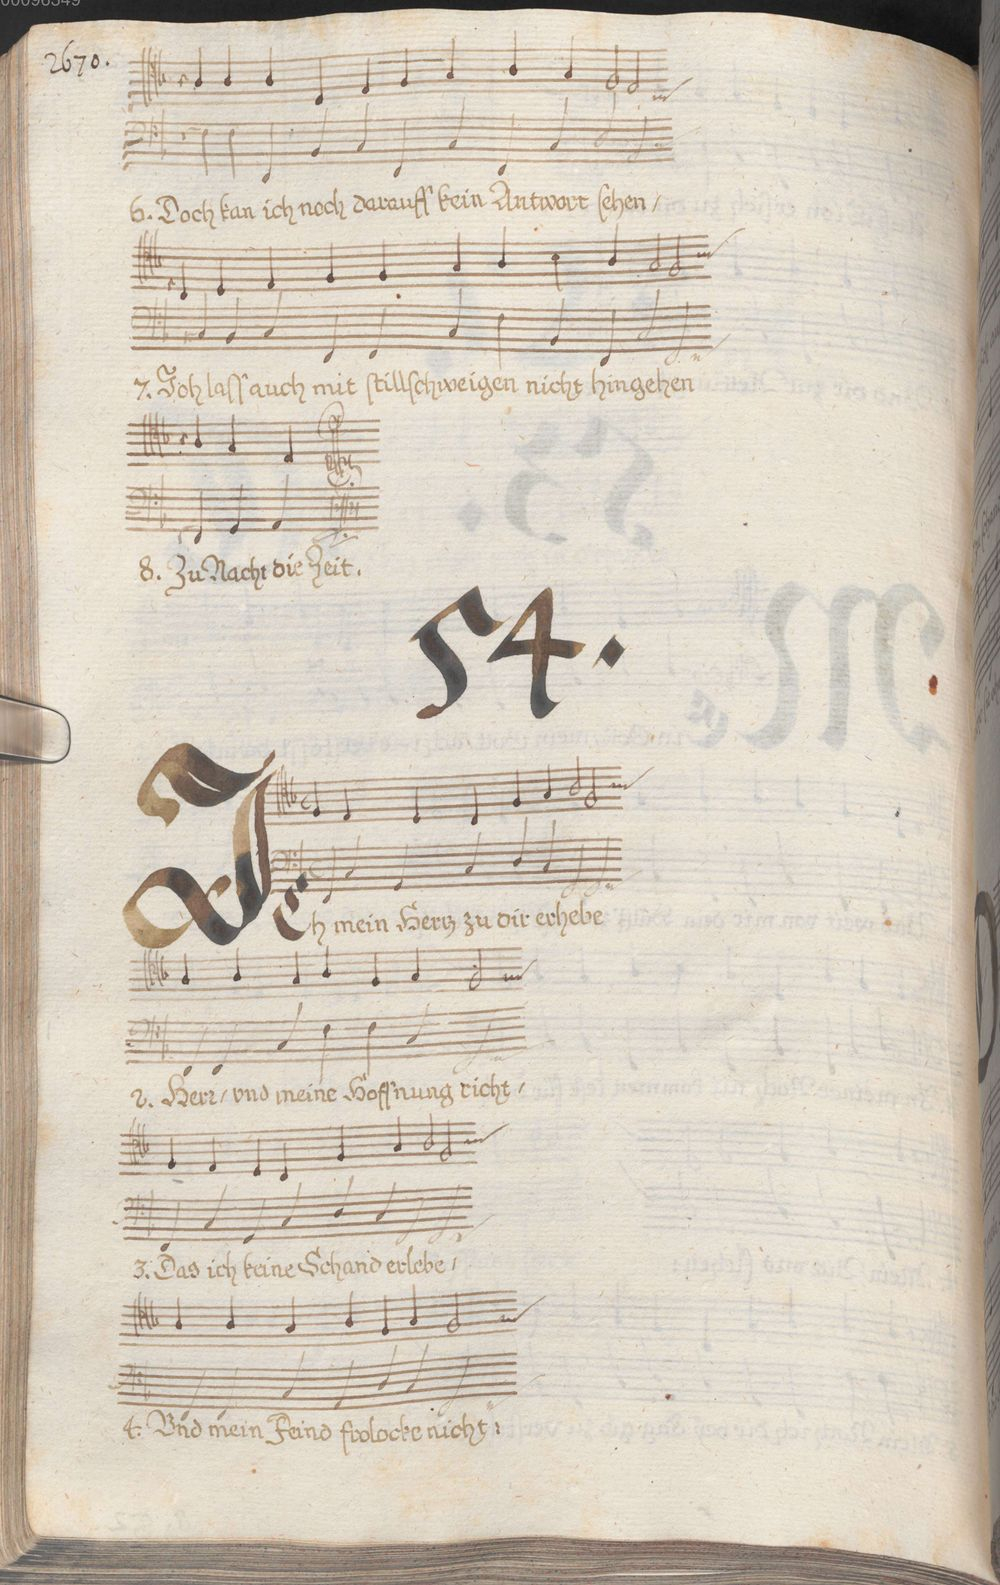 00098349
2670.
6. Doch kan ich noch darauff kein Antwort sehen /
7. Ich lass auch mit stillschweigen nicht hingehen
8. Zu Nacht die Zeit.
54.
Ich mein Hertz zu dir erhebe
2. Herr / vnd meine Hoffnung richt /
3. Das ich keine Schand erlebe /
4. Vnd mein Feind frolocke nicht: